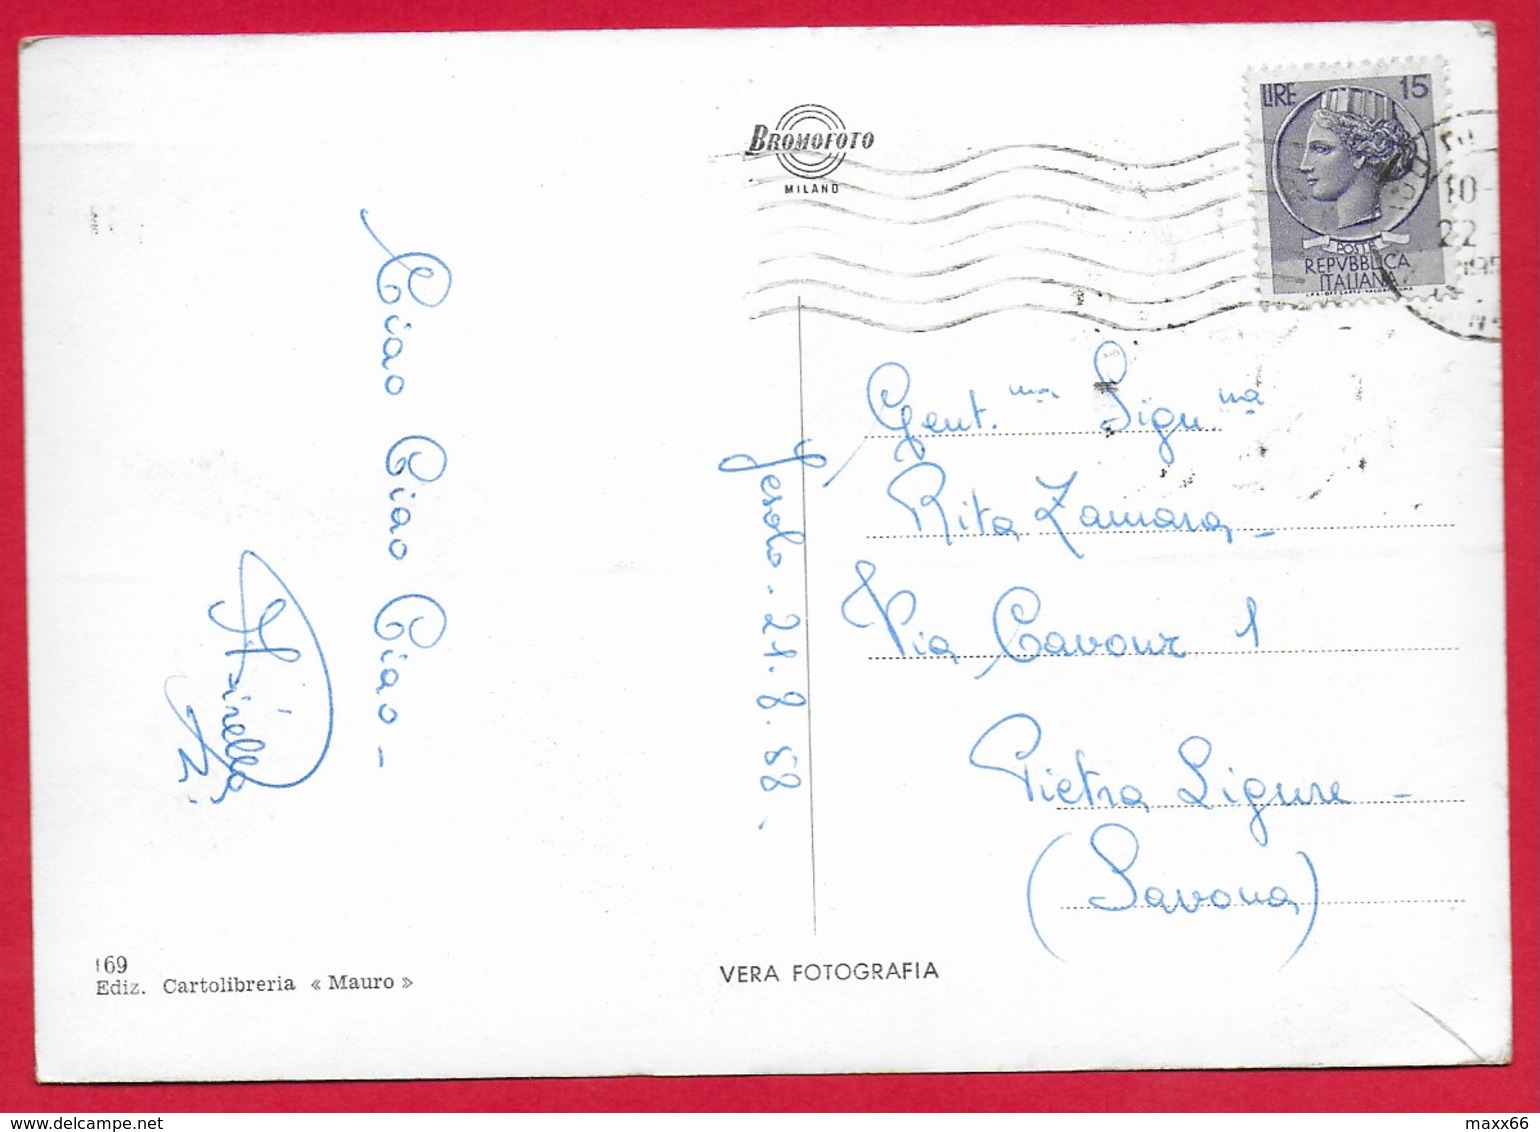 BROMOFOTO
MILANO
LIRE 15
POSTE
REPVBBLICA
ITALIANA
10
22
195
Ciao Ciao Ciao -
Mirella Z.
Jesolo - 21.8.58.
Gent.ma Sign.na
Rita Zamara -
Via Cavour 1
Pietra Ligure -
(Savona)
169
Ediz. Cartolibreria « Mauro »
VERA FOTOGRAFIA
delcampe.net
maxx66